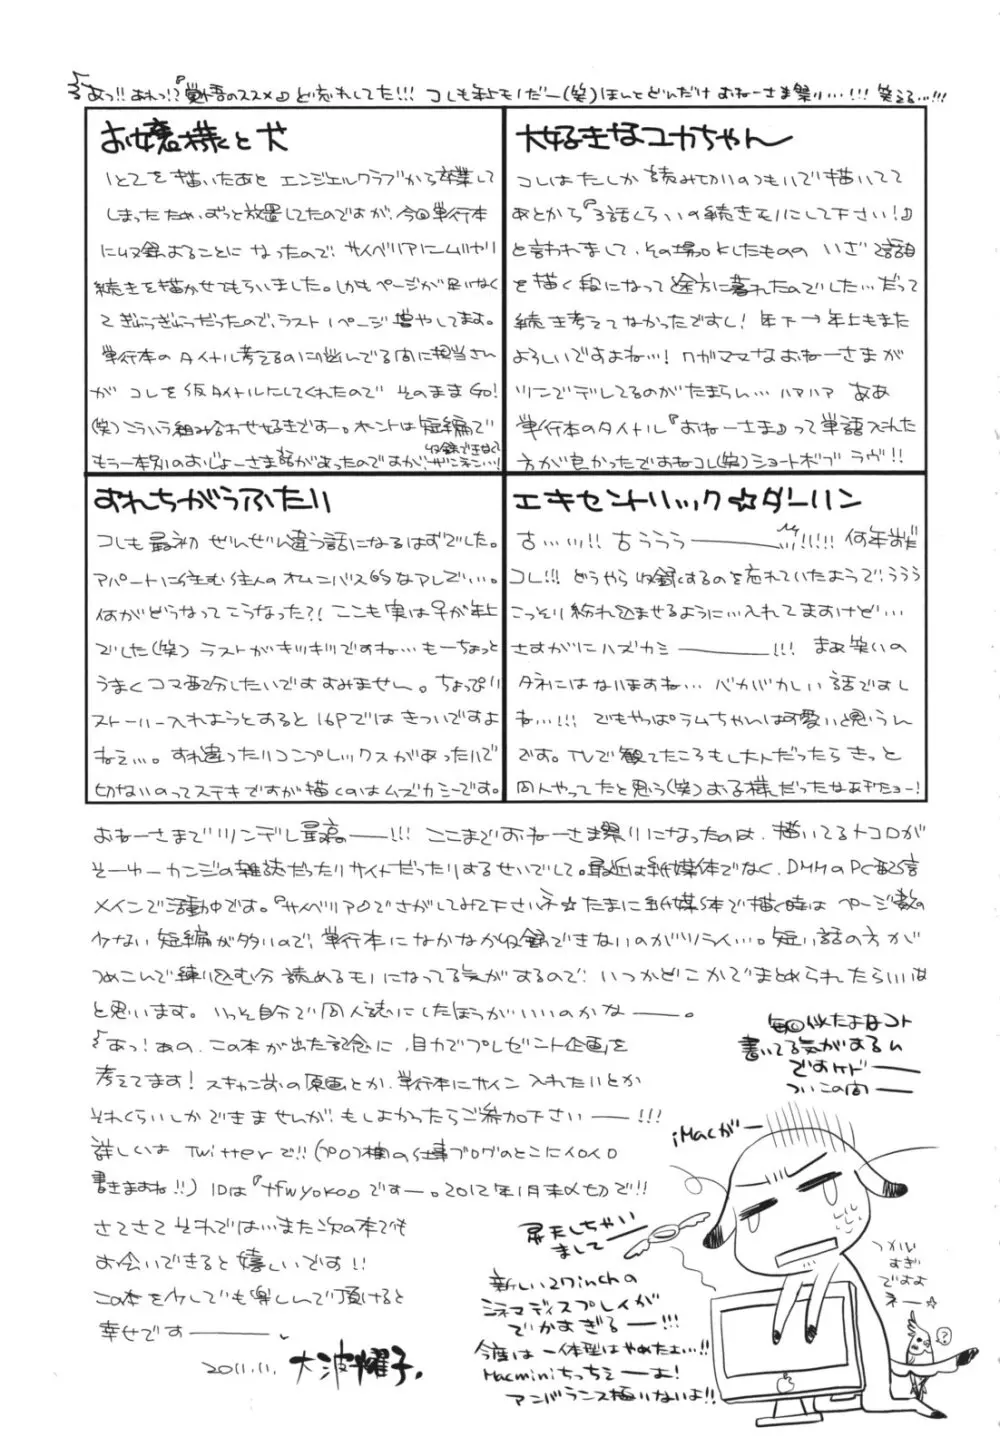 あっ!! あれっ!?『覚悟のススメ』ど忘れしてた!!! コレも年上モノだー(笑)ほんとどんだけおねーさま祭り…!!! 笑える…!!!
お嬢様と犬
1と2を描いたあと エンジェルクラブから卒業して
しまったため、ずっと放置してたのですが、今回単行本
に収録することに なったので、サイベリアにムリヤリ
続きを描かせてもらいました。しかもページが足りなく
てぎゅうぎゅうだったので、ラスト1ページ増やしてます。
単行本のタイトル考えるのに悩んでる間に担当さん
が コレを仮タイトルにしてくれたので そのままGO!
(笑)こういう組み合わせ好きですー。ホントは短編で
もう一本別のおじょーさま話があったのですが、収録できなくてザンネン…!
大好きなユカちゃん
コレはたしか 読み切りのつもりで描いてて
あとから『3話くらいの続きモノにして下さい!』
と言われまして、その場の しのいだものの いざ2話目
を描く段になって途方に暮れたのでした…だって
続き考えてなかったですし! 年下→年上もまた
よろしいですよね…! ワガママなおねーさまが
ツンでデレしてるのがたまらん… ハァハァ ああ
単行本のタイトル『おねーさま』って単語入れた
方が良かったですかねコレ(笑)ショートボブ ラヴ!!
すれちがうふたり
コレも最初 ぜんぜん違う話になるはずでした。
アパートに住む住人のオムニバス的なアレで…。
何がどうなってこうなった?! ここも実は♀が年上
でした(笑) ラストがキツキツですね… もーちょっと
うまくコマ配分したいですすみません。ちょっぴり
ストーリー入れようとすると16Pではきついですよ
ねぇ…。すれ違ったりコンプレックスがあったりで
切ないのってステキですが描くのはムズカシーです。
エキセントリック☆ダーリン
古…ッ!! 古ううう―――!!!!! 何年前だ
コレ!!! どうやら収録するのを忘れていたようで、ううう
こっそり紛れ込ませるように…入れてますけど…
さすがにハズカシ―――!!! まあ笑いの
タネにはなりますね… バカバカしい話ですし
ね…!!! でもやっぱラムちゃんは可愛いと思うん
です。TVで観てたころもし大人だったらきっと
同人やってたと思う(笑)お子様だったなあたしょー!
おねーさまでツンデレ最高――!!! ここまでおねーさま祭りになったのは、描いてるトコロが
そーゆーカンジの雑誌だったりサイトだったりするせいでして。最近は紙媒体でなく、DMMのPC配信
メインで活動中です。『サイベリア』でさがしてみて下さいネ☆ たまに紙媒体で描く時は ページ数の
少ない短編が多いので、単行本になかなか収録できないのがツライ…。短い話の方が
つめこんで練り込む分 読めるモノになってる気がするので、いつかどこかでまとめられたらいいな
と思います。いっそ自分で同人誌にしたほうがいいのかな――。
あっ!あの、この本が出た記念に、自力でプレゼント企画を
考えてます! スキャン前の原画とか、単行本にサイン入れたいとか
それくらいしかできませんが、もしよかったらご参加下さい――!!!
詳しくは Twitterで!!(プロフ欄の仕事ブログのとこにイロイロ
書きますね!!) IDは『tfwyoko』ですー。2012年1月末〆切で!!
さてさて それでは…また次の本でも
お会いできると嬉しいです!!
この本を少しでも楽しんで頂けると
幸せです―――
2011.11. 大波耀子。
毎回似たよなコト
書いてる気がするん
ですけど――
ついこの間――
iMacが――
昇天しちゃい
まして――
新しい27inchの
シネマディスプレイが
でかすぎる――!!!
今度は一体型はやめたよ…!!
Macminiちっちぇーよ!
アンバランス極りないよ!!
つかい
すぎ
ですよ
ネー☆
?